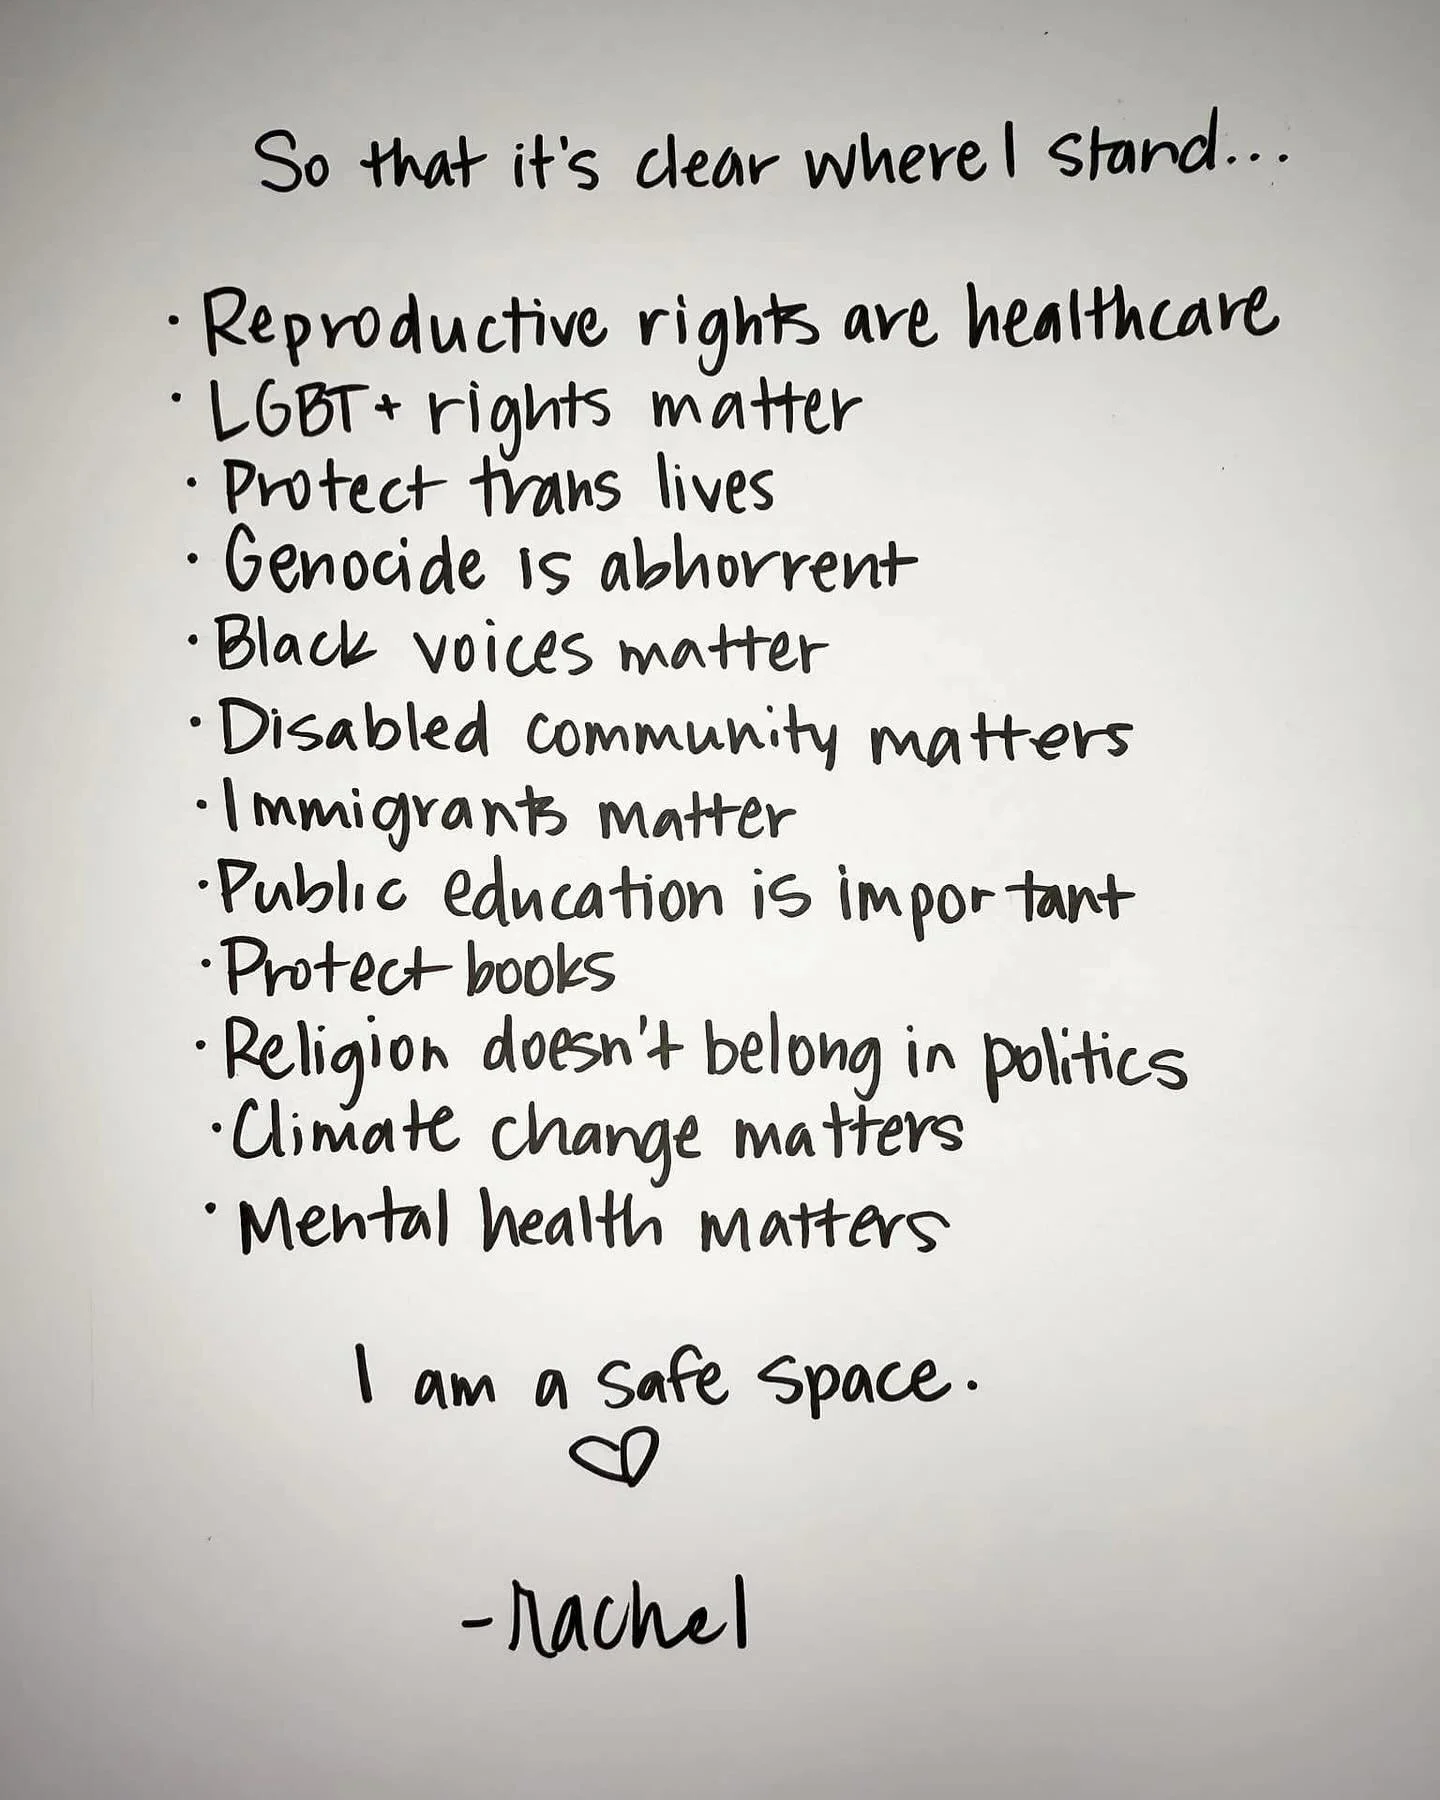 So that it's clear where I stand...
• Reproductive rights are healthcare
• LGBT+ rights matter
• Protect trans lives
• Genocide is abhorrent
• Black voices matter
• Disabled community matters
• Immigrants matter
• Public education is important
• Protect books
• Religion doesn't belong in politics
• Climate change matters
• Mental health matters
I am a safe space.
-rachel